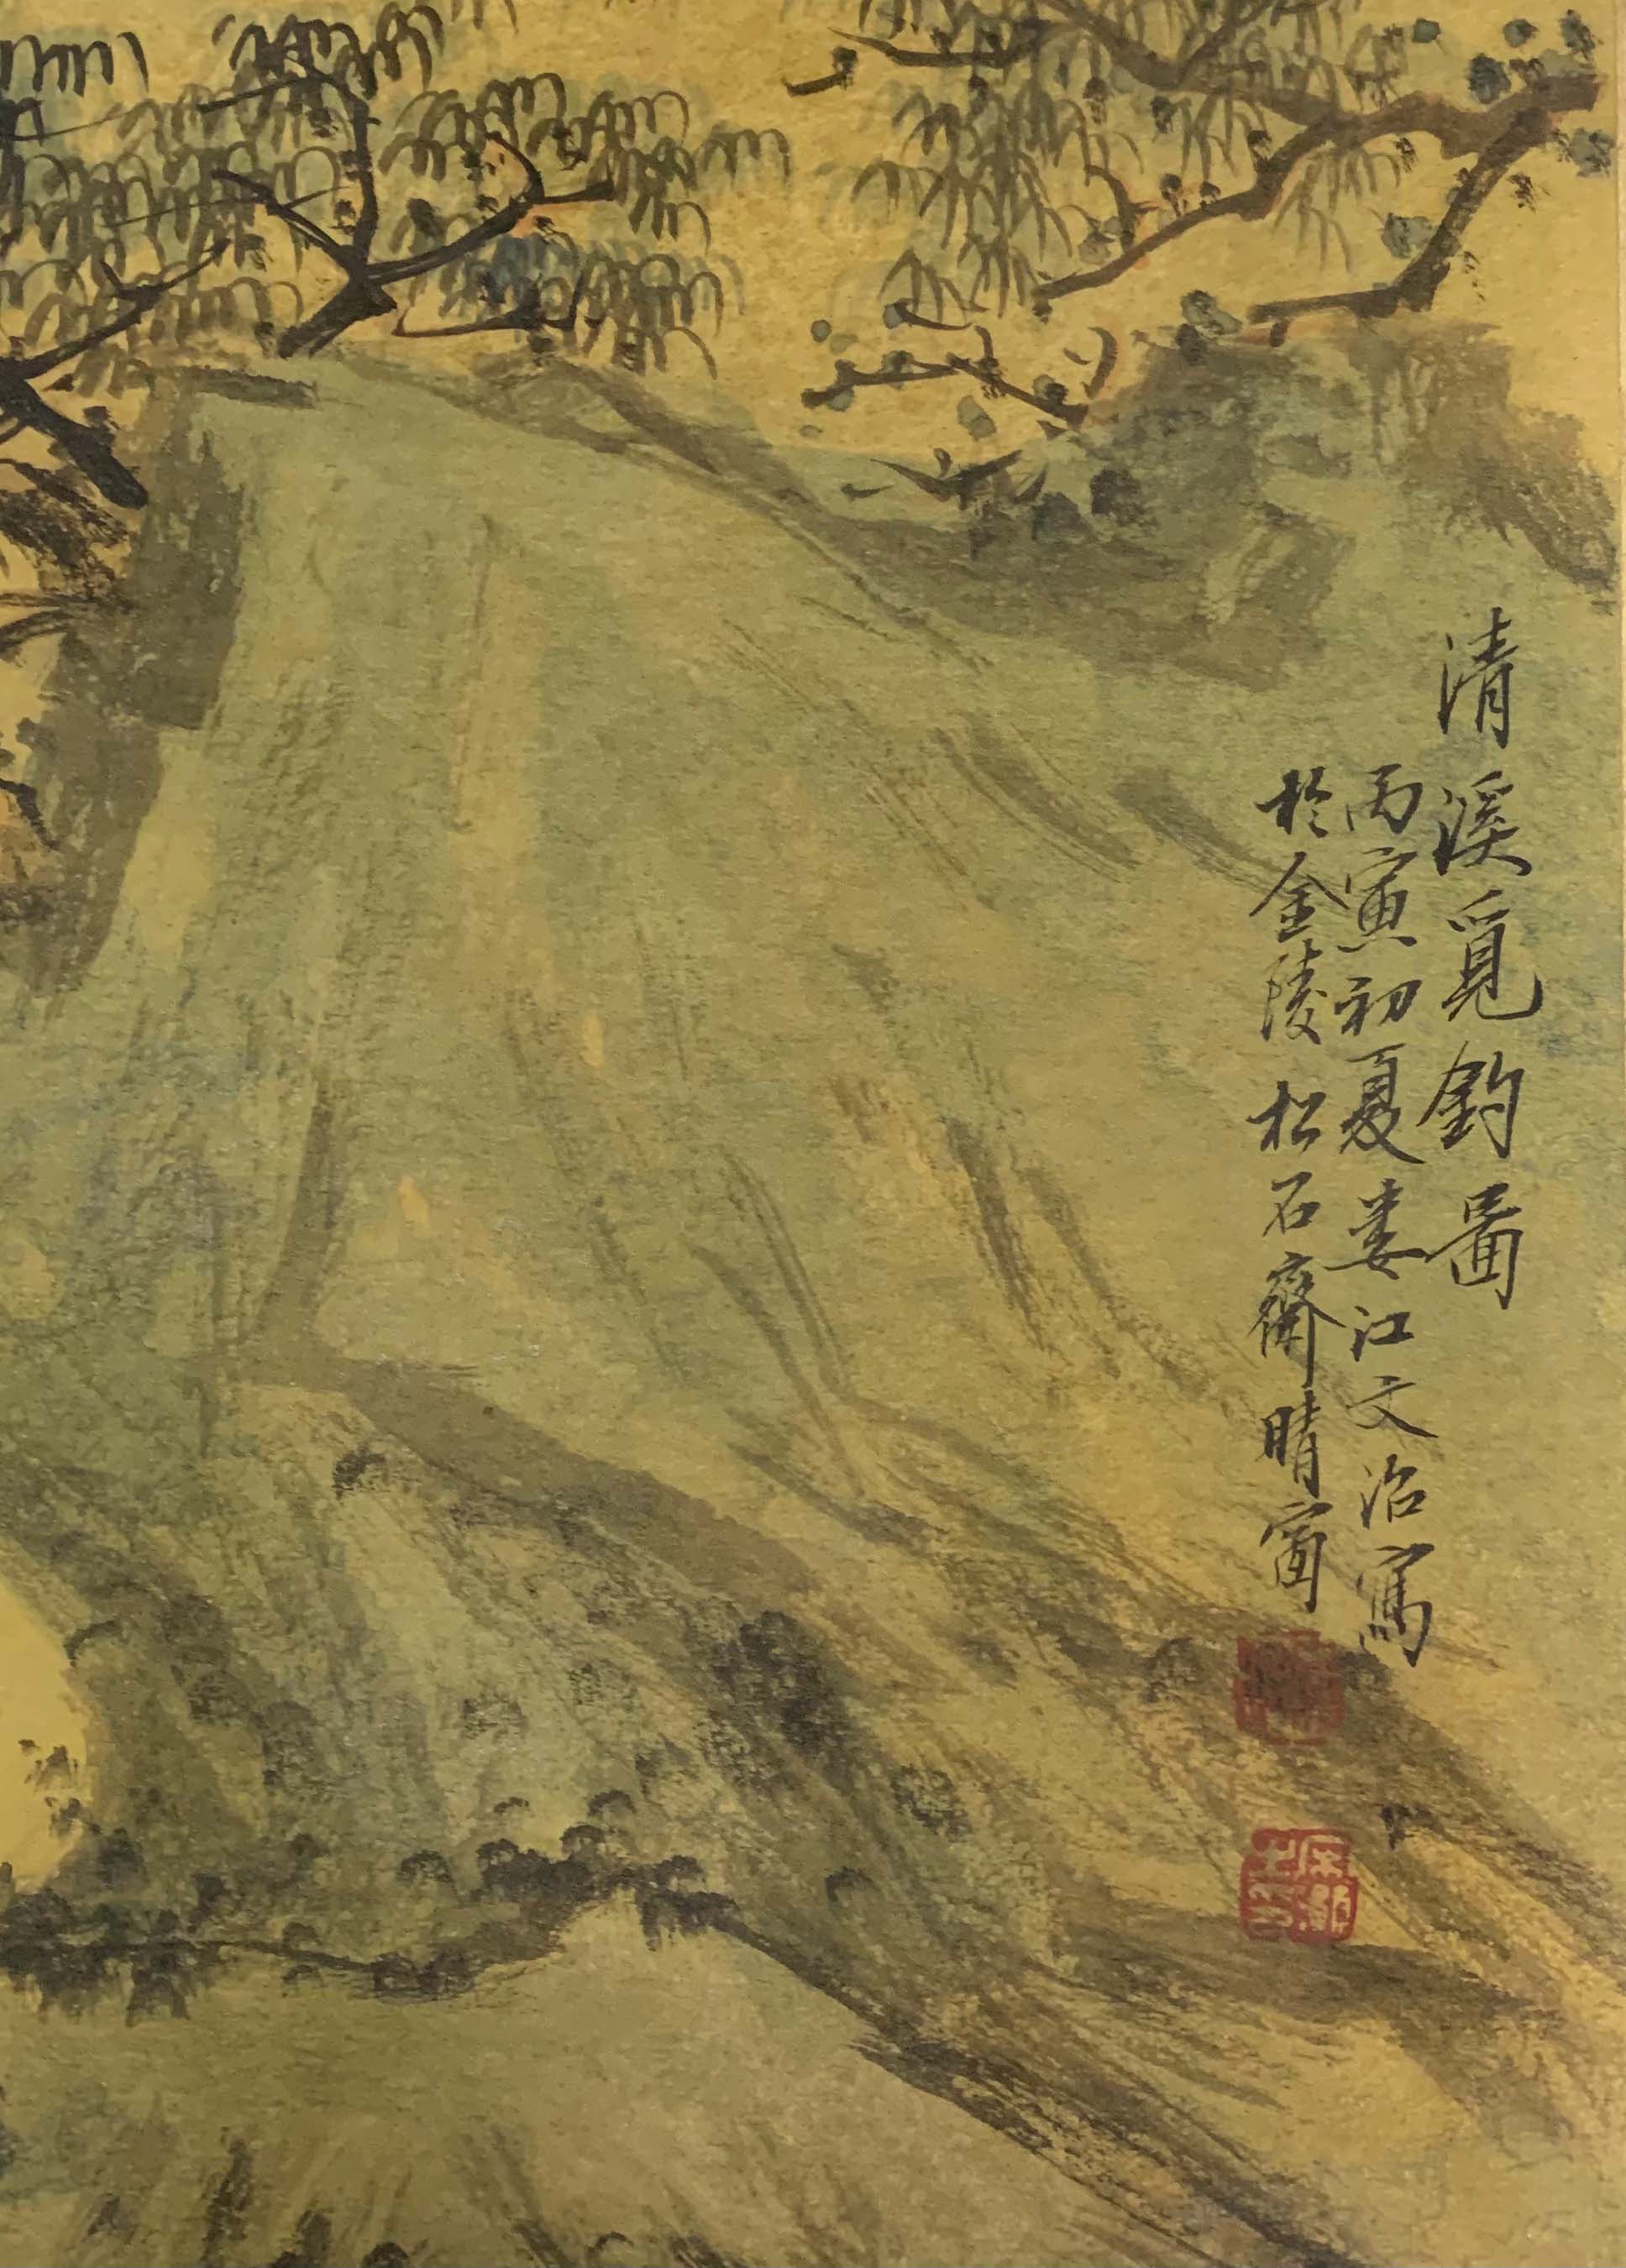 清溪覓釣圖
丙寅初夏娄江文治寫
於金陵松石齋晴窗